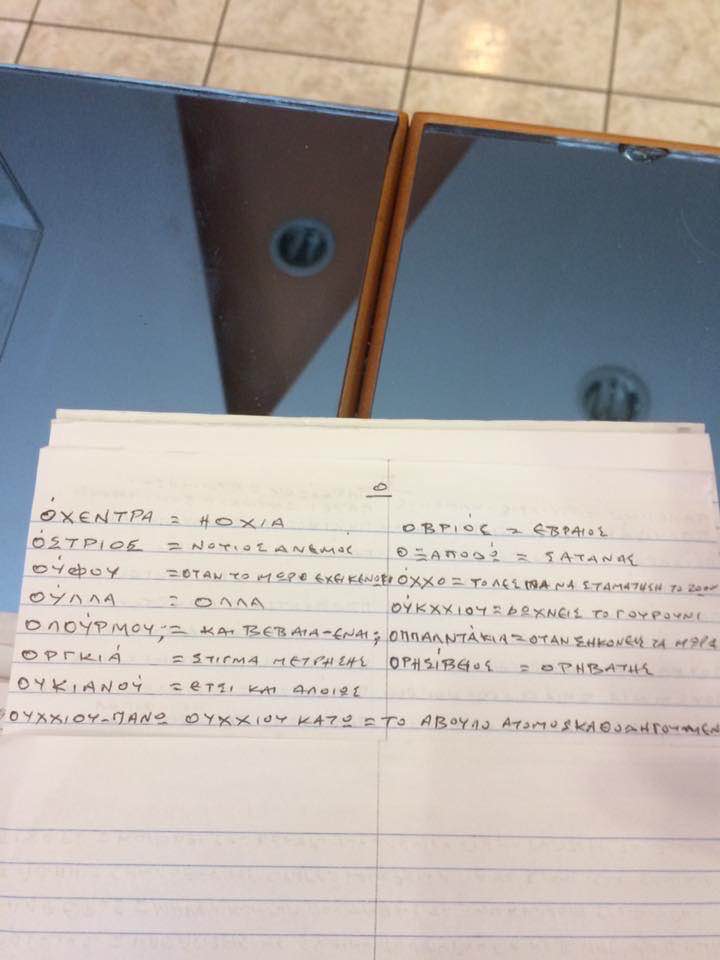 Ο
ΌΧΕΝΤΡΑ = Η ΟΧΙΑ ΟΒΡΙΌΣ = ΕΒΡΑΙΟΣ
ΌΣΤΡΙΟΣ = ΝΟΤΙΟΣ ΑΝΕΜΟΣ ΟΞΑΠΟΔΏ = ΣΑΤΑΝΑΣ
ΟΎΦΟΥ = ΟΤΑΝ ΤΟ ΜΩΡΟ ΕΧΕΙ ΚΕΝΩΘΕΙ ΌΧΧΟ = ΤΟ ΛΕΣ ΓΙΑ ΝΑ ΣΤΑΜΑΤΗΣΗ ΤΟ ΖΩΟΝ
ΟΎΛΛΑ = ΟΛΛΑ ΟΎΚΧΧΙΟΥ = ΔΩΧΝΕΙΣ ΤΟ ΓΟΥΡΟΥΝΙ
ΟΛΟΎΡΜΟΥ; = ΚΑΙ ΒΕΒΑΙΑ-ΕΝΑΙ; ΟΠΠΑΛΝΤΆΚΙΑ = ΟΤΑΝ ΣΗΚΟΝΕΙΣ ΤΑ ΜΩΡΑ
ΟΡΓΚΙΆ = ΣΤΙΓΜΑ ΜΕΤΡΗΣΗΣ ΟΡΗΣΊΒΕΙΟΣ = ΟΡΗΒΑΤΗΣ
ΟΥΚΙΑΝΟΎ = ΕΤΣΙ ΚΑΙ ΑΛΟΙΩΣ
ΟΥΧΧΙΟΥ-ΠΑΝΩ ΟΥΧΧΙΟΥ ΚΑΤΩ = ΤΟ ΑΒΟΥΛΟ ΑΤΟΜΟ Σ ΚΑΘΟΔΗΓΟΥΜΕΝ